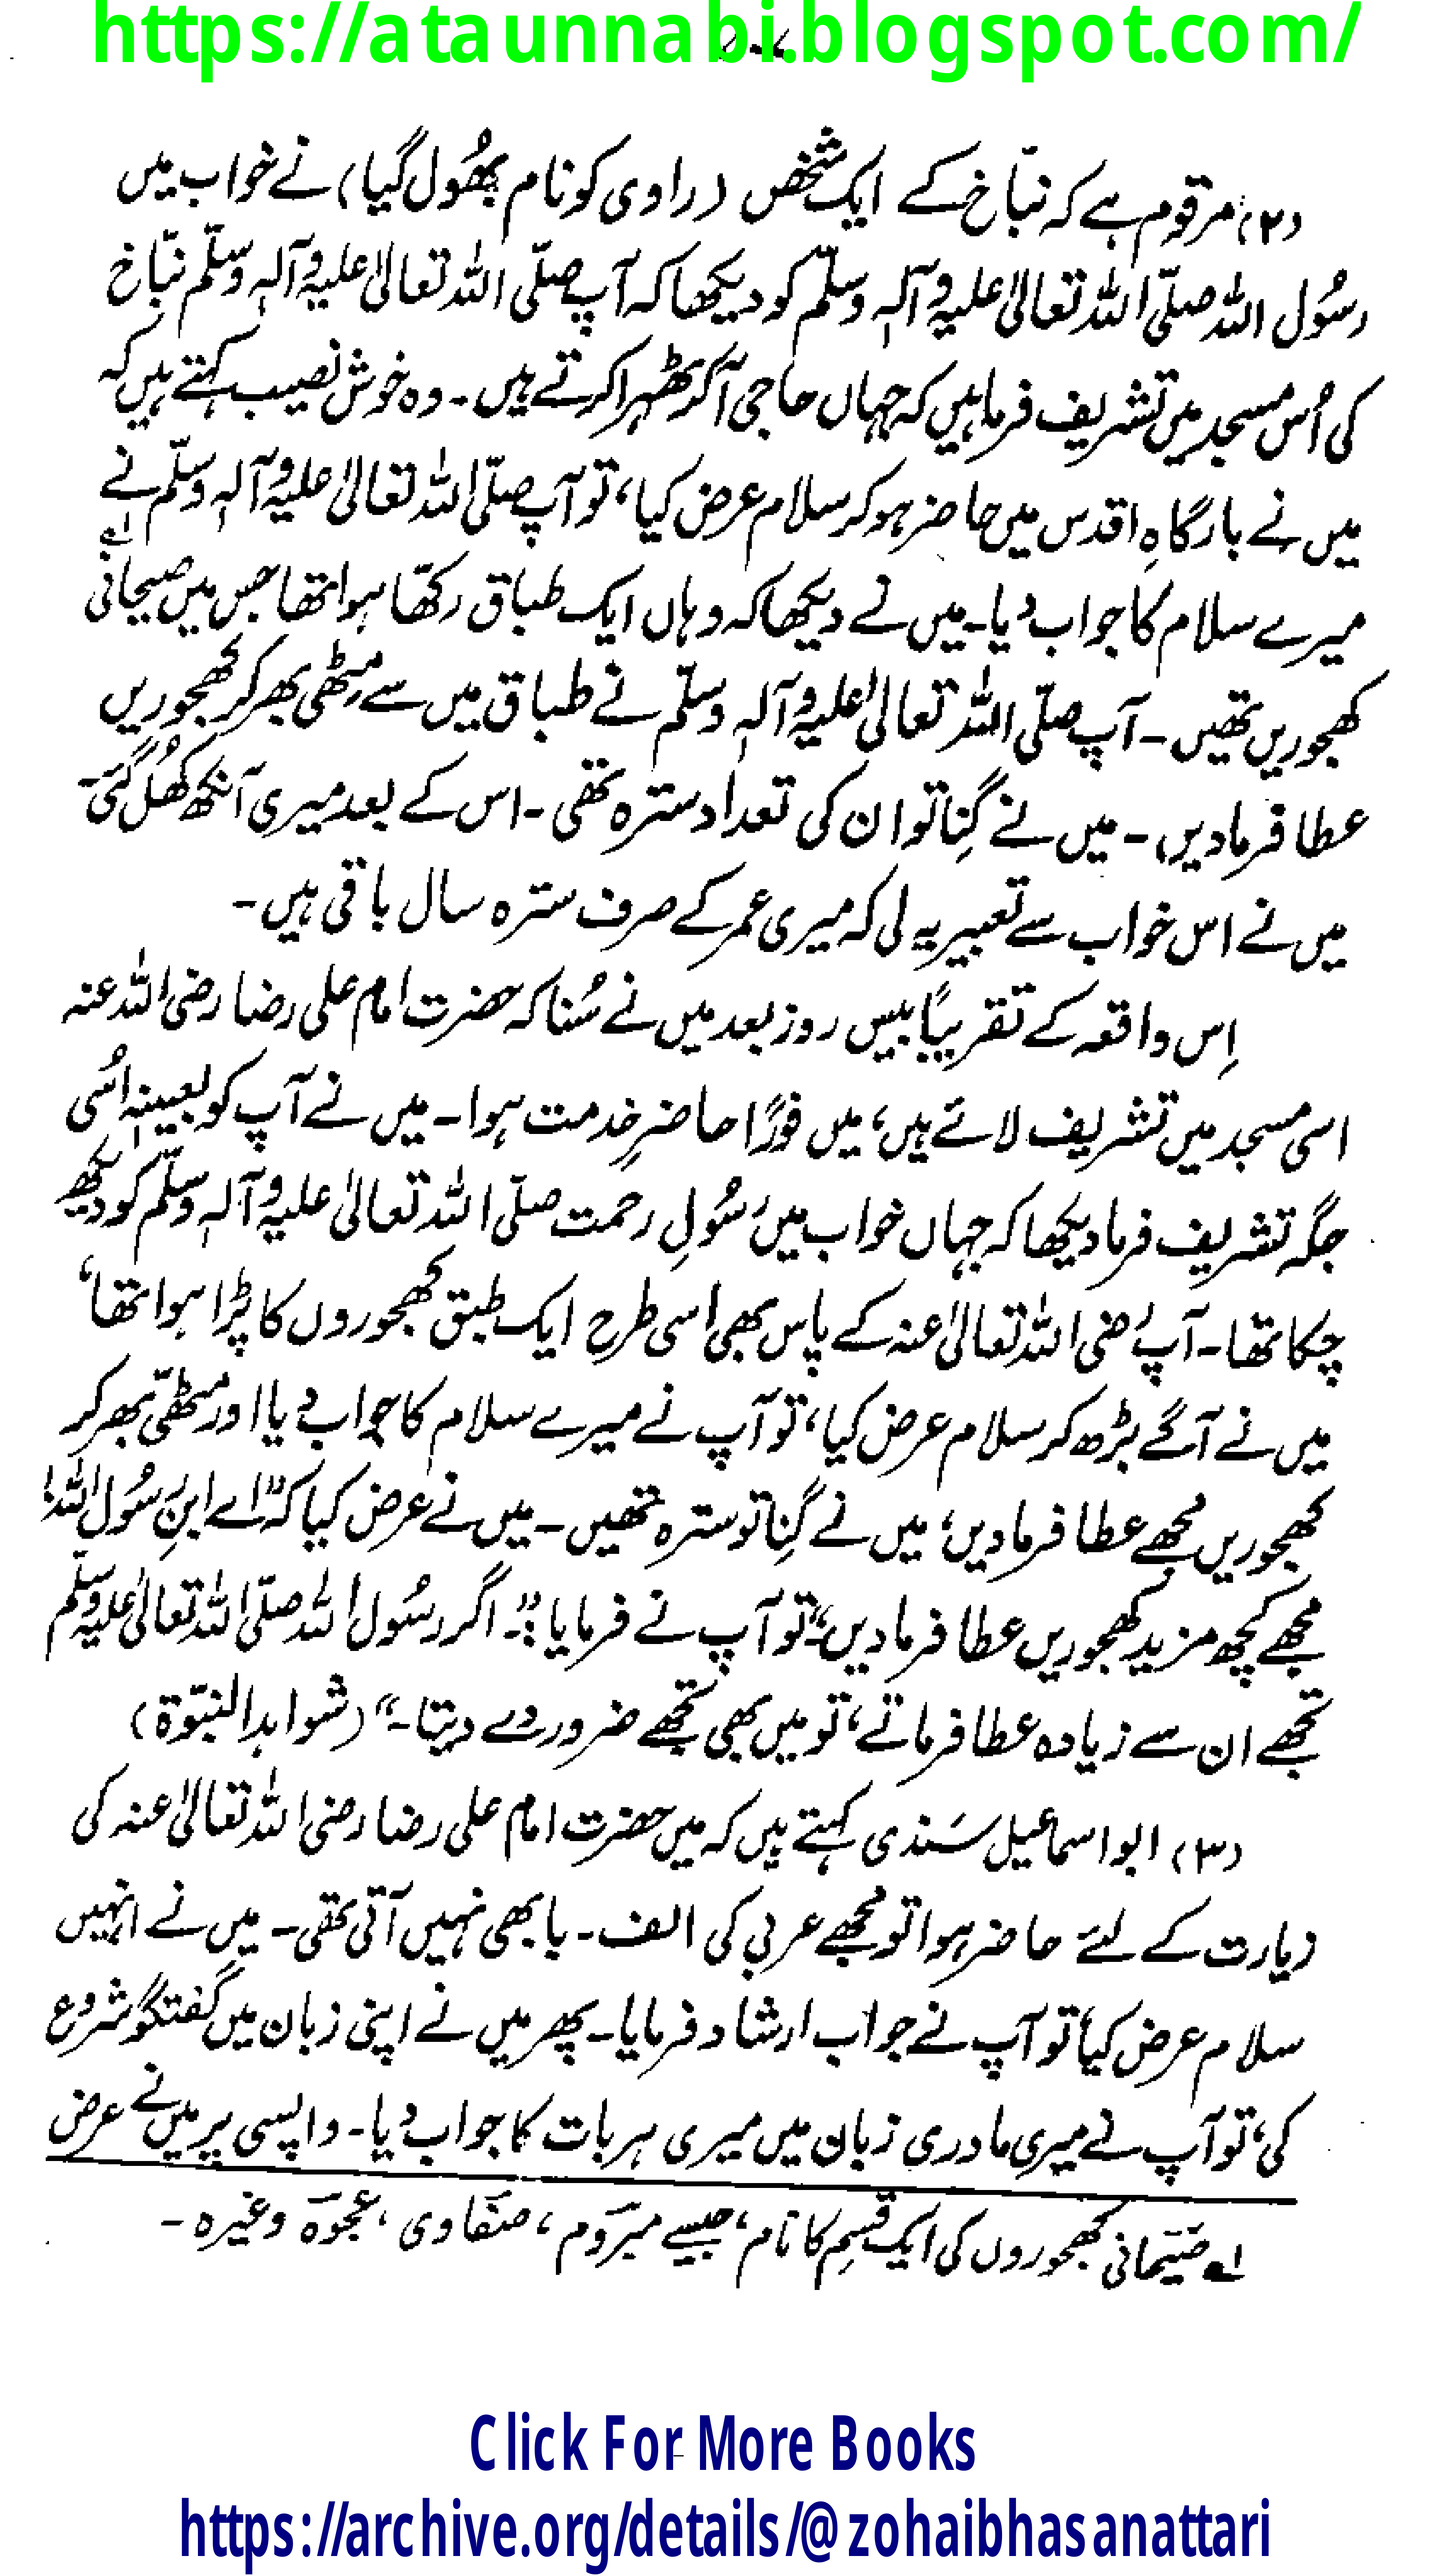 https://ataunnabi.blogspot.com/
(۲) مرقوم ہے کہ نبّاخ کے ایک شخص (راوی کو نام بھُول گیا) نے خواب میں
رسُول اللہ صلّی اللہ تعالیٰ علیہ وآلہٖ وسلّم کو دیکھا کہ آپ صلّی اللہ تعالیٰ علیہ وآلہٖ وسلّم نبّاخ
کی اُس مسجد میں تشریف فرما ہیں کہ جہاں حاجی آکر ٹھہرا کرتے ہیں۔ وہ خوش نصیب کہتے ہیں کہ
میں نے بارگاہِ اقدس میں حاضر ہو کر سلام عرض کیا، تو آپ صلّی اللہ تعالیٰ علیہ وآلہٖ وسلّم نے
میرے سلام کا جواب دیا۔ میں نے دیکھا کہ وہاں ایک طباق رکھّا ہوا تھا جس میں صیحانی ؎۱
کھجوریں تھیں۔ آپ صلّی اللہ تعالیٰ علیہ وآلہٖ وسلّم نے طباق میں سے مٹھی بھر کر کھجوریں
عطا فرمادیں۔ میں نے گِنا تو ان کی تعداد سترہ تھی۔ اس کے بعد میری آنکھ کھُل گئی۔
میں نے اس خواب سے تعبیر یہ لی کہ میری عمر کے صرف سترہ سال باقی ہیں۔
اِس واقعہ کے تقریباً بیس روز بعد میں نے سُنا کہ حضرت امام علی رضا رضی اللہ عنہ
اسی مسجد میں تشریف لائے ہیں، میں فوراً حاضرِ خدمت ہوا۔ میں نے آپ کو بعینہٖ اُسی
جگہ تشریف فرما دیکھا کہ جہاں خواب میں رسُولِ رحمت صلّی اللہ تعالیٰ علیہ وآلہٖ وسلّم کو دیکھ
چکا تھا۔ آپ رضی اللہ تعالیٰ عنہ کے پاس بھی اسی طرح ایک طبق کھجوروں کا پڑا ہوا تھا،
میں نے آگے بڑھ کر سلام عرض کیا، تو آپ نے میرے سلام کا جواب دیا اور مٹھّی بھر کر
کھجوریں مجھے عطا فرمادیں، میں نے گِنا تو سترہ تھیں۔ میں نے عرض کیا کہ "اے ابنِ رسُول اللہ!
مجھے کچھ مزید کھجوریں عطا فرمادیں"۔ تو آپ نے فرمایا: "اگر رسُول اللہ صلّی اللہ تعالیٰ علیہ وسلّم
تجھے ان سے زیادہ عطا فرماتے، تو میں بھی تجھے ضرور دے دیتا۔" (شواہد النبوّة)
(۳) ابو اسماعیل سَندی کہتے ہیں کہ میں حضرت امام علی رضا رضی اللہ تعالیٰ عنہ کی
زیارت کے لئے حاضر ہوا تو مجھے عربی کی الف۔ با بھی نہیں آتی تھی۔ میں نے انہیں
سلام عرض کیا، تو آپ نے جواب ارشاد فرمایا۔ پھر میں نے اپنی زبان میں گفتگو شروع
کی، تو آپ نے میری مادری زبان میں میری ہر بات کا جواب دیا۔ واپسی پر میں نے عرض
؎۱ صَیحانی کھجوروں کی ایک قسِم کا نام، جیسے مبرَوم، صنفاوی، عجوَہ وغیرہ۔
Click For More Books
https://archive.org/details/@zohaibhasanattari